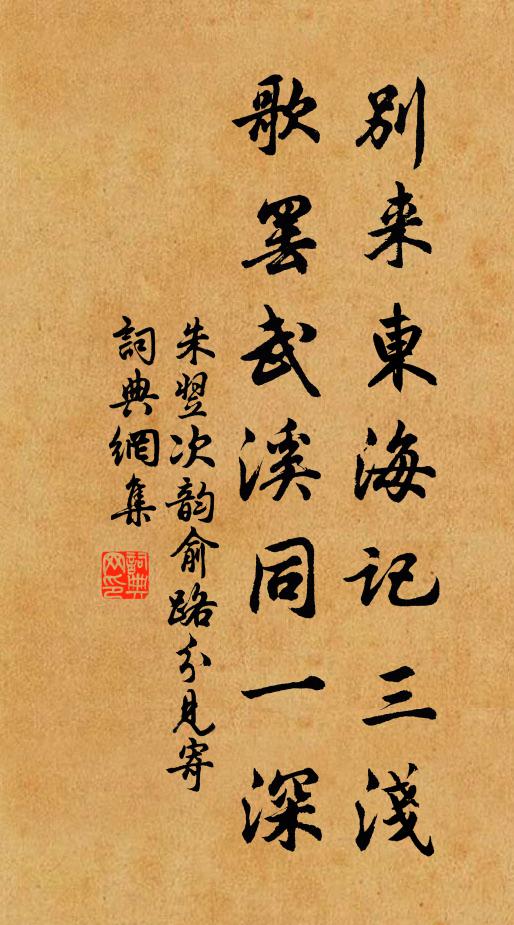 別来東海記三淺
歌罷武溪同一深
朱翌次韵俞路分見寄
詞典網集
詞典网印